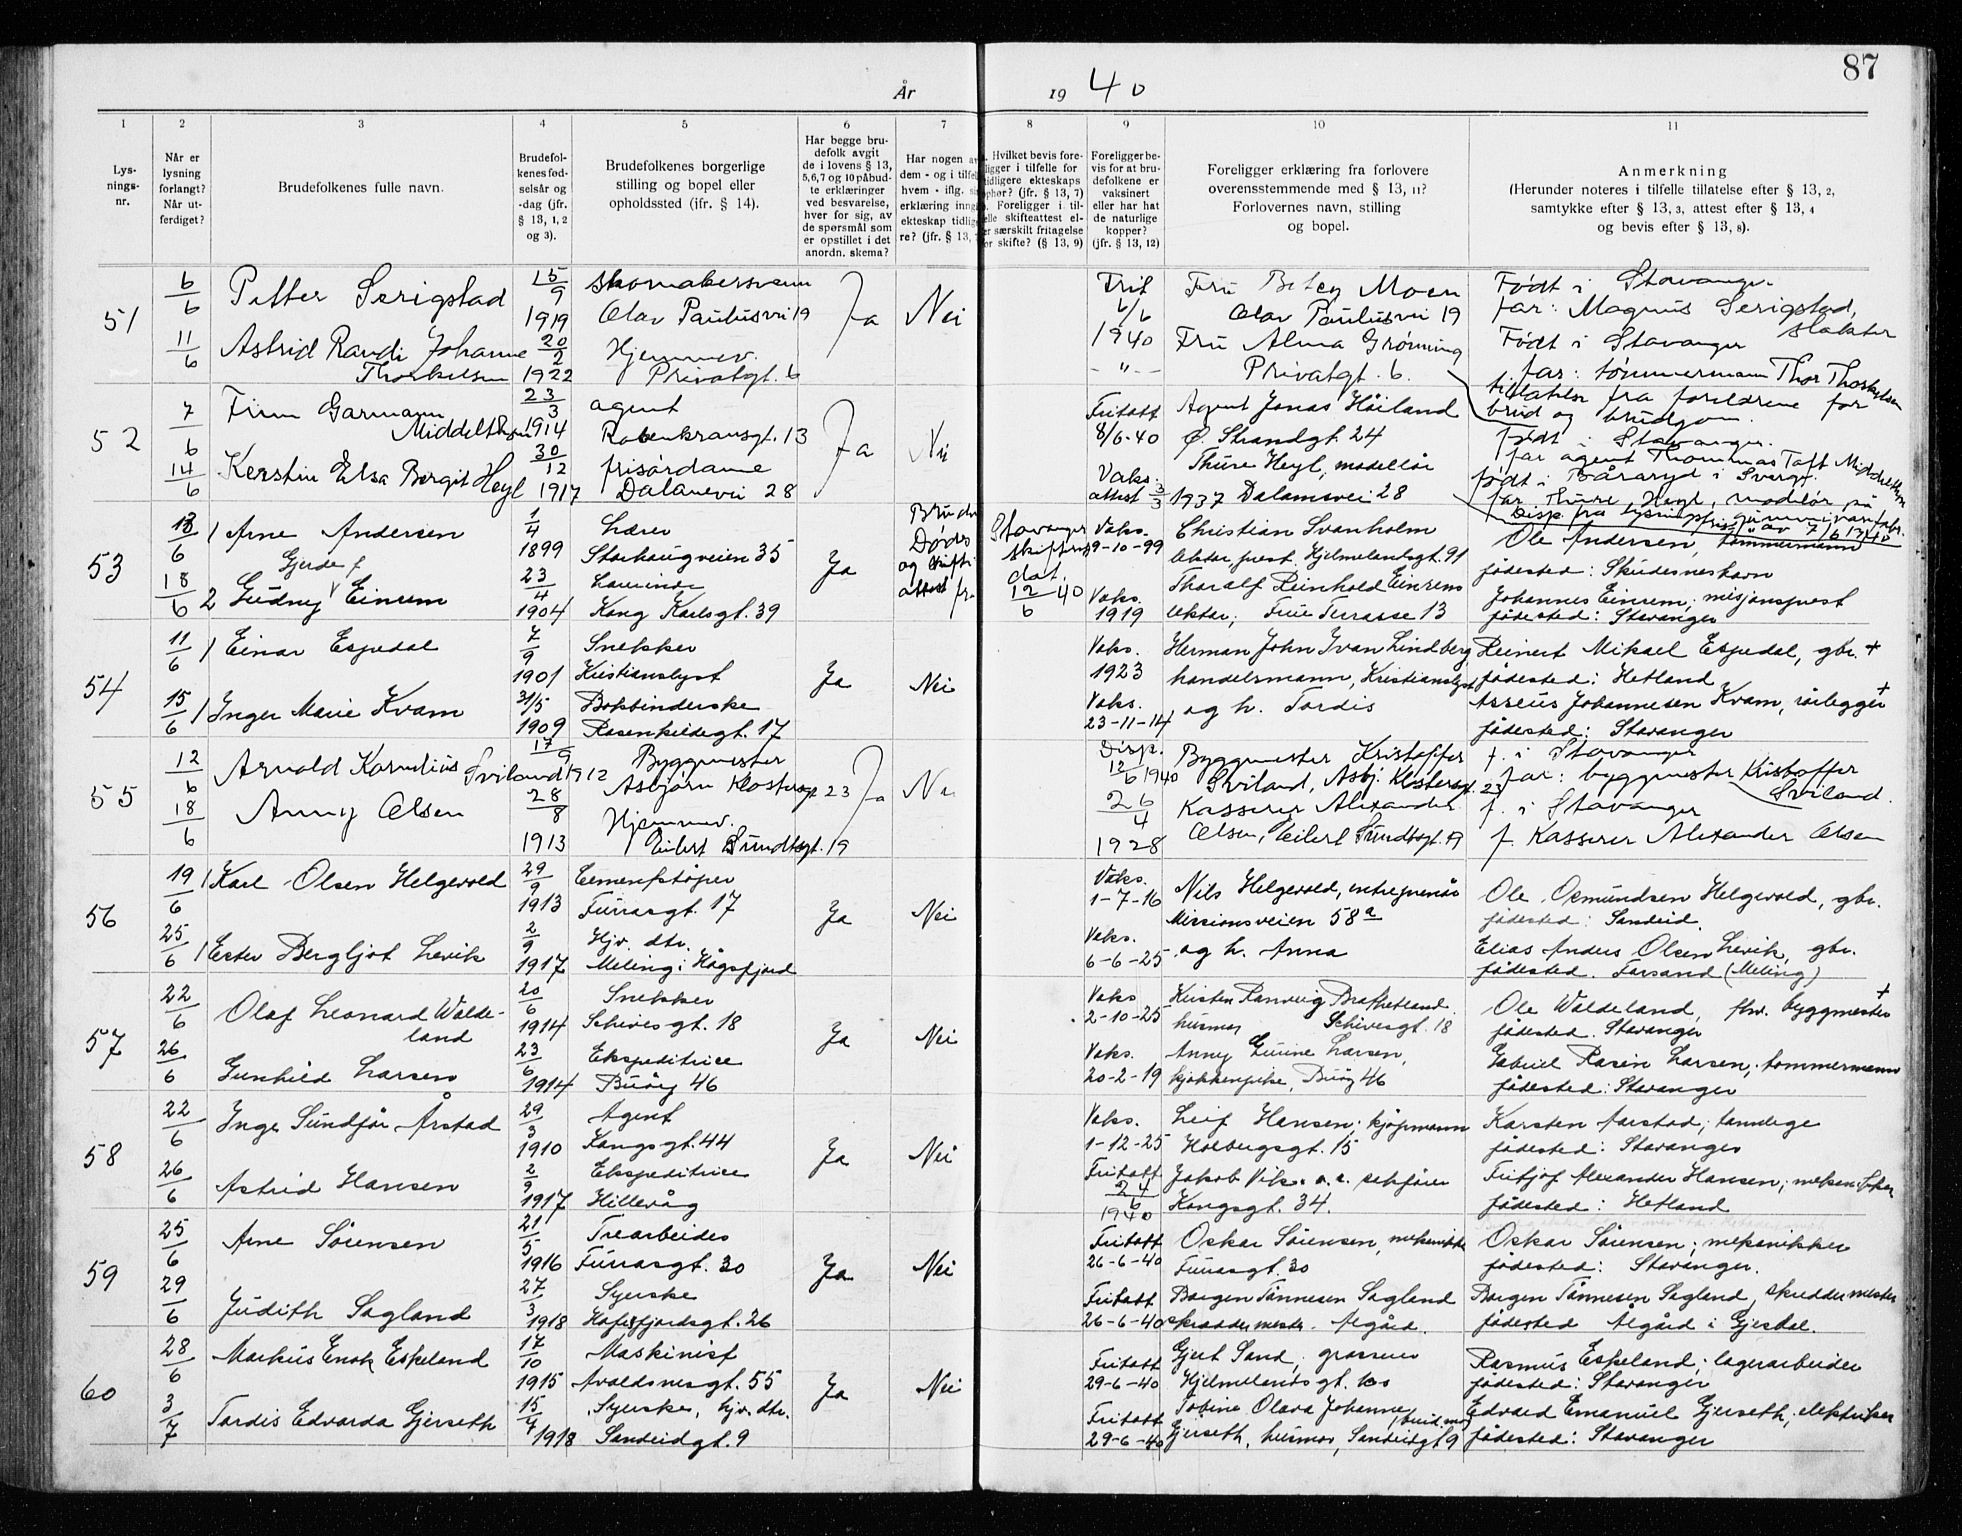 87
År
19 40
1
2
3
4
5
6
7
8
9
10
11
Lys-
nings-
nr.
Når er
lysning
forlangt?
Når ut-
ferdiget?
Brudefolkenes fulle navn.
Brudefol-
kenes fød-
selsår og
-dag (jfr.
§ 13, 1, 2
og 3).
Brudefolkenes borgerlige
stilling og bopel eller
opholdssted (jfr. § 14).
Har begge bru-
defolk avgit
de i lovens § 13,
5,6,7 og 10 påbud-
te erklæringer
ved besvarelse,
hver for sig, av
de spørsmål som
er opstillet i det
anordn. skema?
Har nogen av
dem - og i tilfel
hvem - iflg. si
erklæring inngå
ekteskap tidlige
re? (jfr. § 13,
Hvilket bevis fore-
ligger i tilfelle for
tidligere ekteskaps
ophør? (jfr. § 13, 7)
Foreligger i til-
elle skifteattest el-
er særskilt fritagelse
or skifte? (§ 13, 9)
Foreligger be-
vis for at bru-
defolkene er
vaksinert
eller har hat
de naturlige
kopper?
(jfr. § 13, 12)
Foreligger erklæring fra forlovere
overensstemmende med § 13, 11?
Forlovernes navn, stilling
og bopel.
Anmerkning
(Herunder noteres i tilfelle tillatelse efter § 13, 2,
samtykke efter § 13, 3, attest efter § 13, 4
og bevis efter § 13, 8).
51
6/6
11/6
Petter Serigstad
Astrid Randi Johanne
Thorkelsen
15/9
1919
20/2
1922
skomakersvenn
Olav Paulusvei 19
Hjemmev.
Privatgt. 6
Ja
Nei
Frit
6/6
1940
-"-
Fru Betzy Moen
Olav Paulusvei 19
Fru Alma Grønning
Privatgt. 6.
Født i Stavanger.
far: Magnus Serigstad,
slakter
Født i Stavanger
far: tømmermann Thor Thorkelsen
tillatelse fra foreldrene for
brud og brudgom.
52
7/6
14/6
Finn Garmann
Middelthon
Kerstin Elsa Bergit Heyl
23/3
1914
30/12
1917
agent
Rosenkransgt. 13
frisørdame
Dalanevei 28
Ja
Nei
Fritatt
8/6-40
Vaks.
attest 3/3 1937
Agent Jonas Høiland
Ø. Strandgt. 24
Thure Heyl, modellør
Dalanevei 28
født i Stavanger.
far agent Thommas Taft Middelthon
født i Båraryd i Sverge.
far Thure Heyl, modelør på
gummivarefabr.
Disp. fra lysningsfrist av 7/6 13/40
53
13/6
18/6
1 Arne Andersen
Gjerde f
2 Gudny Einrem
1/4
1899
23/4
1904
Lærer
Storhaugveien 35
Lærerinde
Kong Karlsgt. 39
Ja
Brude
Dødes
og skifte
attest fra
Stavanger
skifterett
dat.
12/6 40
Vaks.
9-10-99
Vaks.
1919
Christian Svanholm
lektor, pens. Hjelmelandsgt. 91
Tharalf Reinhold Einrem
lektor, Frue Terrasse 13
Ole Andersen, tømmermann
fødested: Skudesneshavn
Johannes Einrem; misjonsprest
fødested: Stavanger
54
11/6
15/6
1 Einar Espedal
1 Inger Marie Kvam
7/9
1901
31/5
1909
Snekker
Kristianslyst
Bokbinderske
Rosenkildegt. 17
Ja
Nei
Vaks.
1923
Vaks.
23-11-14
Herman John Ivan Lindberg,
handelsmann, Kristianslyst
og h. Tordis
Reinert Mikael Espedal, gbr. +
fødested: Hetland
Asseus Johannesen Kvam, rørlegger +
fødested: Stavanger
55
12/6
18/6
Arnold Kornelius Sviland
Anny Olsen
17/9
1912
28/8
1913
Byggmester
Asbjørn Klostersgt 23
Hjemmev.
Eilert Sundtsgt. 19
Ja
Nei
Disp.
12/6 1940
26/4
1928
Byggmester Kristoffer
Sviland, Asbj. Klostersgt. 23
Kasserer Alexander
Olsen, Eilert Sundtsgt. 19
f. i Stavanger
far: byggmester Kristoffer
Sviland.
f. i Stavanger
f. Kasserer Alexander Olsen
56
19/6
25/6
1 Karl Olsen Helgevold
1 Ester Bergljot Levik
29/9
1913
2/9
1917
Cementstøper
Furrasgt. 17
Hjv. dtr.
Meling i Høgsfjord
Ja
Nei
Vaks.
1-7-16
Vaks.
6-6-25
Nils Helgevold, entreprenør
Missionsveien 58 a
og h. Anna
Ole Osmundsen Helgevold, gbr.
fødested: Sandeid.
Elias Anders Olsen Levik, gbr.
fødested. Forsand (Meling)
57
22/6
26/6
Olaf Leonard Walde-
land
Gunhild Larsen
20/6
1914
23/6
1914
Snekker
Schivesgt. 18
Ekspeditrice
Buøy 46
Ja
Nei
Vaks
2-10-25
Vaks.
20-2-19
Kristen Ranveig Brakhetland
husmor Schivesgt. 18
Anny Gurine Larsen,
kjøkkenpike, Buøy 46
Ole Waldeland, fhv. byggmester +
fødested. Stavanger
Gabriel Rasin Larsen, tømmermann
fødested: Stavanger
58
22/6
26/6
Inge Sundfør Årstad
Astrid Hansen
29/3
1910
2/9
1917
Agent
Kongsgt. 44
Ekspeditrice
Hillevåg
Ja
Nei
Vaks.
1-12-25
Fritatt
24/6
1940
Leif Hansen; kjøpmann
Holbergsgt. 15
Jakob Vik. o.r. sakfører
Kongsgt. 34.
Karsten Aarstad; tannlege
fødested: Stavanger
Fritjof Alexander Hansen; mekaniker
fødested: Hetland
59
25/6
29/6
Arne Sørensen
Judith Sagland
21/5
1916
27/3
1918
Trearbeider
Furrasgt. 30
Syerske
Hafrsfjordsgt. 26
Ja
Nei
Fritatt
26-6-40
Fritatt
26-6-40
Oskar Sørensen, mekanikker
Furrasgt. 30
Borgen Tønnesen Sagland
skreddermester. Ålgård.
Oskar Sørensen; mekanikker
fødested: Stavanger.
Borgen Tønnesen Sagland, skreddermester
fødested Ålgård i Gjesdal.
60
28/6
3/7
Markus Enok Eskeland
Tordis Edvarda Gjerseth
17/10
1915
15/7
1918
Maskinist
Avaldsnesgt. 55
Syerske, hjv. dtr.
Sandeidgt. 9
Ja
Nei
Fritatt
29-6-40
Fritatt
29-6-40
Gjert Sand; grosserer
Hjelmelandsgt. 100
Tobine Olava Johanne
Gjerseth, husmor, Sandeidgt 9
Rasmus Eskeland; lagerarbeider
fødested: Stavanger
Edvard Emanuel Gjerseth, elektriker
fødested: Stavanger